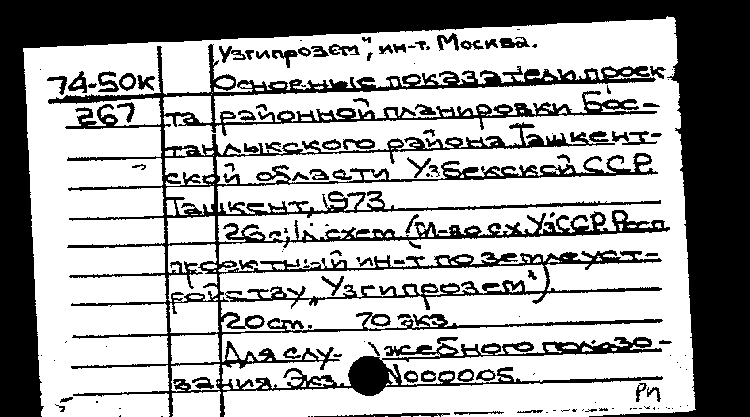 „Узгипрозем", ин-т. Москва.
74-50к Основные показатели проек
267 та районной планировки Бос-
танлыкского района Ташкент-
ской области Узбекской ССР.
Ташкент, 1973.
26с; 1л. схем (М-во с.х. УзССР. Респ.
проектный ин-т по землеуст-
ройству „Узгипрозем").
20см. 70 экз.
Для слу- жебного пользо-
вания. Экз. N000005.
РП